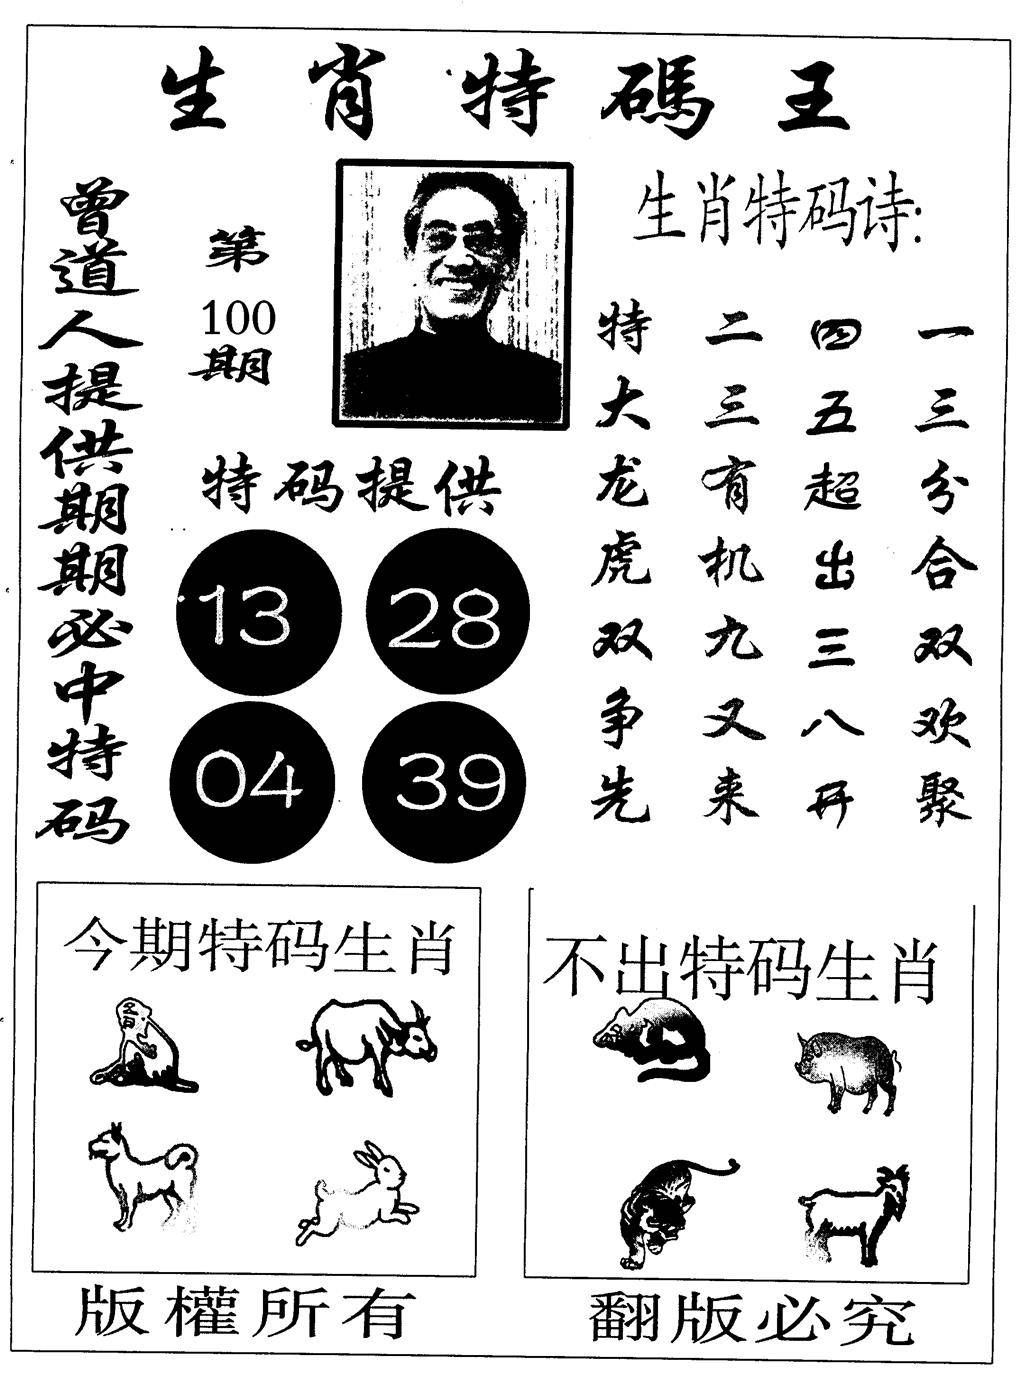 生肖特碼王
曾道人提供期期必中特码
第
100
期
生肖特码诗:
一三分合双欢聚
四五超出三八开
二三有机九又来
特大龙虎双争先
特码提供
13 28
04 39
今期特码生肖
不出特码生肖
版權所有
翻版必究